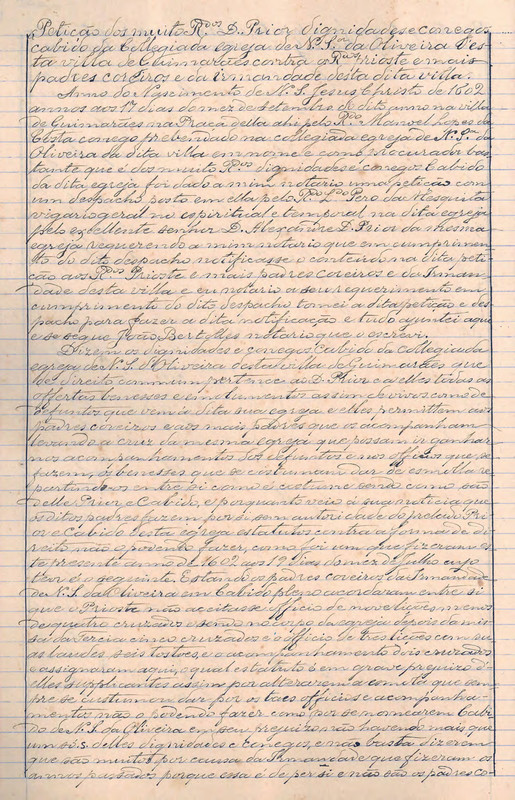 Petição dos muito R.dos D. Prior dignidades e conegos,
cabido da Collegiada egreja de N. S.ra da Oliveira d'es-
ta villa de Guimarães contra os R.dos Prioste e mais
padres coreiros e da irmandade desta dita villa.
Anno do Nascimento de N. S. Jesus Christo de 1602
annos aos 17 dias do mez de setembro do dito anno na villa
de Guimarães na Praça della ahi pelo R.do Manoel Lopes da
Costa conego prebendado na collegiada egreja de N. S.ra da
Oliveira da dita villa em nome e como procurador bas-
tante que é dos muito R.dos dignidades e conegos Cabido
da dita egreja foi dado a mim notario uma petição com
um despacho posto em ella pelo R.do L.do Pero da Mesquita
vigario geral no espiritual e temporal na dita egreja
pelo excellente senhor D. Alexandre D. Prior da mesma
egreja requerendo a mim notario que em cumprimen-
to do dito despacho notificasse o conteudo na dita peti-
ção aos R.dos Prioste e mais padres coreiros e da Irman-
dade desta villa e eu notario a seu requerimento em
cumprimento do dito despacho tomei a dita petição e des-
pacho para fazer a dita notificação e tudo ajuntei aqui
e se segue João notario que o escrevi.
Dizem os dignidades e conegos Cabido da Collegiada
egreja de N. S. d'Oliveira desta villa de Guimarães que
de direito commum pertence ao D. Prior e a elles todas as
offertas benesses e emolumentos assim de vivos como de
defuntos que vem á dita sua egreja e elles permittem aos
padres coreiros e aos mais padres que os acompanham
levando a cruz da mesma egreja que possam ir ganhar
nos acompanhamentos dos defuntos e nos officios que se
fazem, os benesses que se costumam dar de esmolla re-
partindo-os entre si como é costume sendo como são
delles Prior e Cabido, e porquanto veio á sua noticia que
os ditos padres fazem por si sem autoridade do precluido Pri-
or e Cabido desta egreja estatutos contra a forma de di-
reito não o podendo fazer, como foi um que fizeram es-
te presente anno de 1602 aos 19 dias do mez de Julho cujo
teor é o seguinte. Estando os padres coreiros da Irmanda-
de de N. S. da Oliveira em Cabido pleno acordaram entre si
que o Prioste não aceitasse officio de nove lições menos
de quatro cruzados e sendo no corpo da egreja depois da mis-
sa da Tercia cinco cruzados e o officio de tres lições com su-
as laudes, seis tostões, e o acompanhamento dois cruzados
e o assignaram aqui, o qual estatuto é em grave prejuizo d'
elles supplicantes assim por alterarem a conta que sem-
pre se custumou dar por os taes officios e acompanha-
mentos não o podendo fazer como por se nomearem Cabi-
do de N. S. da Oliveira em seu prejuizo não havendo mais que
um só, s. delles dignidades e conegos, e não basta dizerem
que são muitos por causa da Irmandade que fizeram os
annos passados porque essa é de per si e não são os padres co-